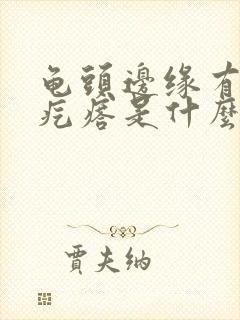 龟頭邊缘有
疙瘩是什麼
賈夫纳